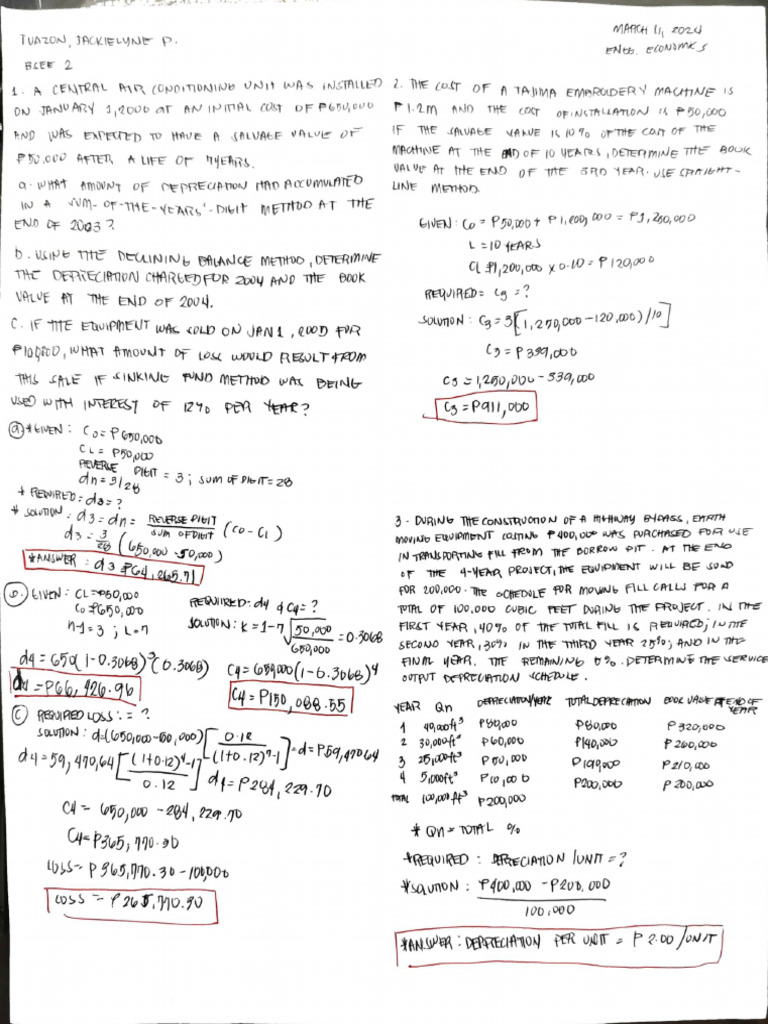 TUAZON, JACKIELYNE P.
BSEE 2
MARCH 11, 2024
ENGG. ECONOMICS
1. A CENTRAL AIR CONDITIONING UNIT WAS INSTALLED
ON JANUARY 1, 2000 AT AN INITIAL COST OF ₱650,000
AND WAS EXPECTED TO HAVE A SALVAGE VALUE OF
₱50.000 AFTER A LIFE OF 7YEARS.
a. WHAT AMOUNT OF DEPRECIATION HAD ACCUMULATED
IN A SUM-OF-THE-YEARS'-DIGIT METHOD AT THE
END OF 2003?
b. USING THE DECLINING BALANCE METHOD, DETERMINE
THE DEPRECIATION CHARGED FOR 2004 AND THE BOOK
VALUE AT THE END OF 2004.
C. IF THE EQUIPMENT WAS SOLD ON JAN 1, 2005 FOR
WHAT AMOUNT OF LOSS WOULD RESULT FROM
THIS SALE IF SINKING FUND METHOD WAS BEING
USED WITH INTEREST OF 12% PER YEAR?
(a) *GIVEN: C0 = ₱650,000
CL = ₱50,000
REVERSE DIGIT = 3 ; SUM OF DIGIT = 28
dn = 3/28
* REQUIRED = d3 = ?
* SOLUTION: d3 = dn = REVERSE DIGIT / SUM OF DIGIT (C0 - CL)
d3 = 3/28 (650,000 - 50,000)
*ANSWER: d3 = ₱64,285.71
(b) GIVEN: CL = ₱50,000
C0 = ₱650,000
n-1 = 3 ; L = 7
REQUIRED: d4 & C4 = ?
SOLUTION: K = 1 - 7√50,000/650,000 = 0.3068
d4 = 650(1-0.3068)³(0.3068)
d4 = ₱66,426.96
C4 = 650,000(1-0.3068)⁴
C4 = ₱150,088.55
(C) REQUIRED LOSS: = ?
SOLUTION: d = (650,000-50,000) [0.12 / (1+0.12)⁷-1] = d = ₱59,470.64
d4 = 59,470.64 [(1+0.12)⁴-1 / 0.12] d4 = ₱284,229.70
C4 = 650,000 - 284,229.70
C4 = ₱365,770.30
LOSS = ₱365,770.30 - 100,000
LOSS = ₱265,770.30
2. THE COST OF A TAJIMA EMBROIDERY MACHINE IS
₱1.2M AND THE COST OF INSTALLATION IS ₱50,000
IF THE SALVAGE VALUE IS 10% OF THE COST OF THE
MACHINE AT THE END OF 10 YEARS, DETERMINE THE BOOK
VALUE AT THE END OF THE 3RD YEAR. USE STRAIGHT-
LINE METHOD.
GIVEN: C0 = ₱50,000 + ₱1,200,000 = ₱1,250,000
L = 10 YEARS
CL = ₱1,200,000 x 0.10 = ₱120,000
REQUIRED = C3 = ?
SOLUTION: C3 = 3[1,250,000-120,000)/10]
C3 = ₱339,000
C3 = 1,250,000 - 339,000
C3 = ₱911,000
3. DURING THE CONSTRUCTION OF A HIGHWAY BYPASS, EARTH
MOVING EQUIPMENT COSTING ₱400,000 WAS PURCHASED FOR USE
IN TRANSPORTING FILL FROM THE BORROW PIT. AT THE END
OF THE 4-YEAR PROJECT, THE EQUIPMENT WILL BE SOLD
FOR 200,000. THE SCHEDULE FOR MOVING FILL CALLS FOR A
TOTAL OF 100,000 CUBIC FEET DURING THE PROJECT. IN THE
FIRST YEAR, 40% OF THE TOTAL FILL IS REQUIRED; IN THE
SECOND YEAR, 30% IN THE THIRD YEAR 25%; AND IN THE
FINAL YEAR, THE REMAINING 5%. DETERMINE THE SERVICE
OUTPUT DEPRECIATION SCHEDULE.
YEAR Qn DEPRECIATION/YEAR TOTAL DEPRECIATION BOOK VALUE AT END OF YEAR
1 40,000ft³ ₱80,000 ₱80,000 ₱320,000
2 30,000ft³ ₱60,000 ₱140,000 ₱260,000
3 25,000ft³ ₱50,000 ₱190,000 ₱210,000
4 5,000ft³ ₱10,000 ₱200,000 ₱200,000
TOTAL 100,000ft³ ₱200,000
* Qn = TOTAL %
*REQUIRED: DEPRECIATION/UNIT = ?
*SOLUTION: ₱400,000 - ₱200,000
100,000
*ANSWER: DEPRECIATION PER UNIT = ₱2.00/UNIT